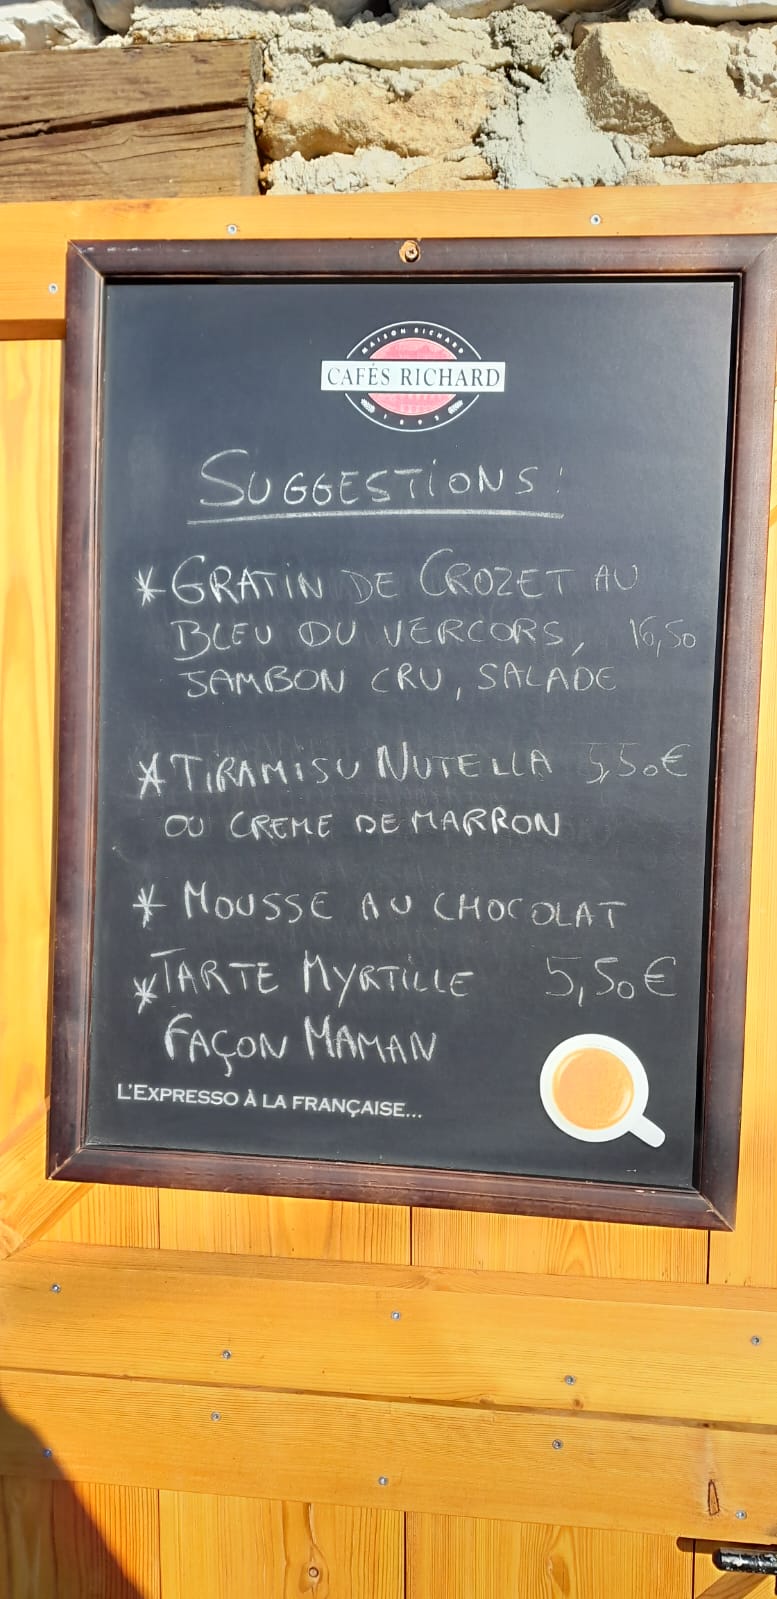 MAISON RICHARD
CAFÉS RICHARD
1892
SUGGESTIONS:
* GRATIN DE CROZET AU
BLEU DU VERCORS, 16,50
JAMBON CRU, SALADE
* TIRAMISU NUTELLA 5,50€
OU CREME DE MARRON
* MOUSSE AU CHOCOLAT
* TARTE MYRTILLE 5,50€
FAÇON MAMAN
L'EXPRESSO À LA FRANÇAISE...